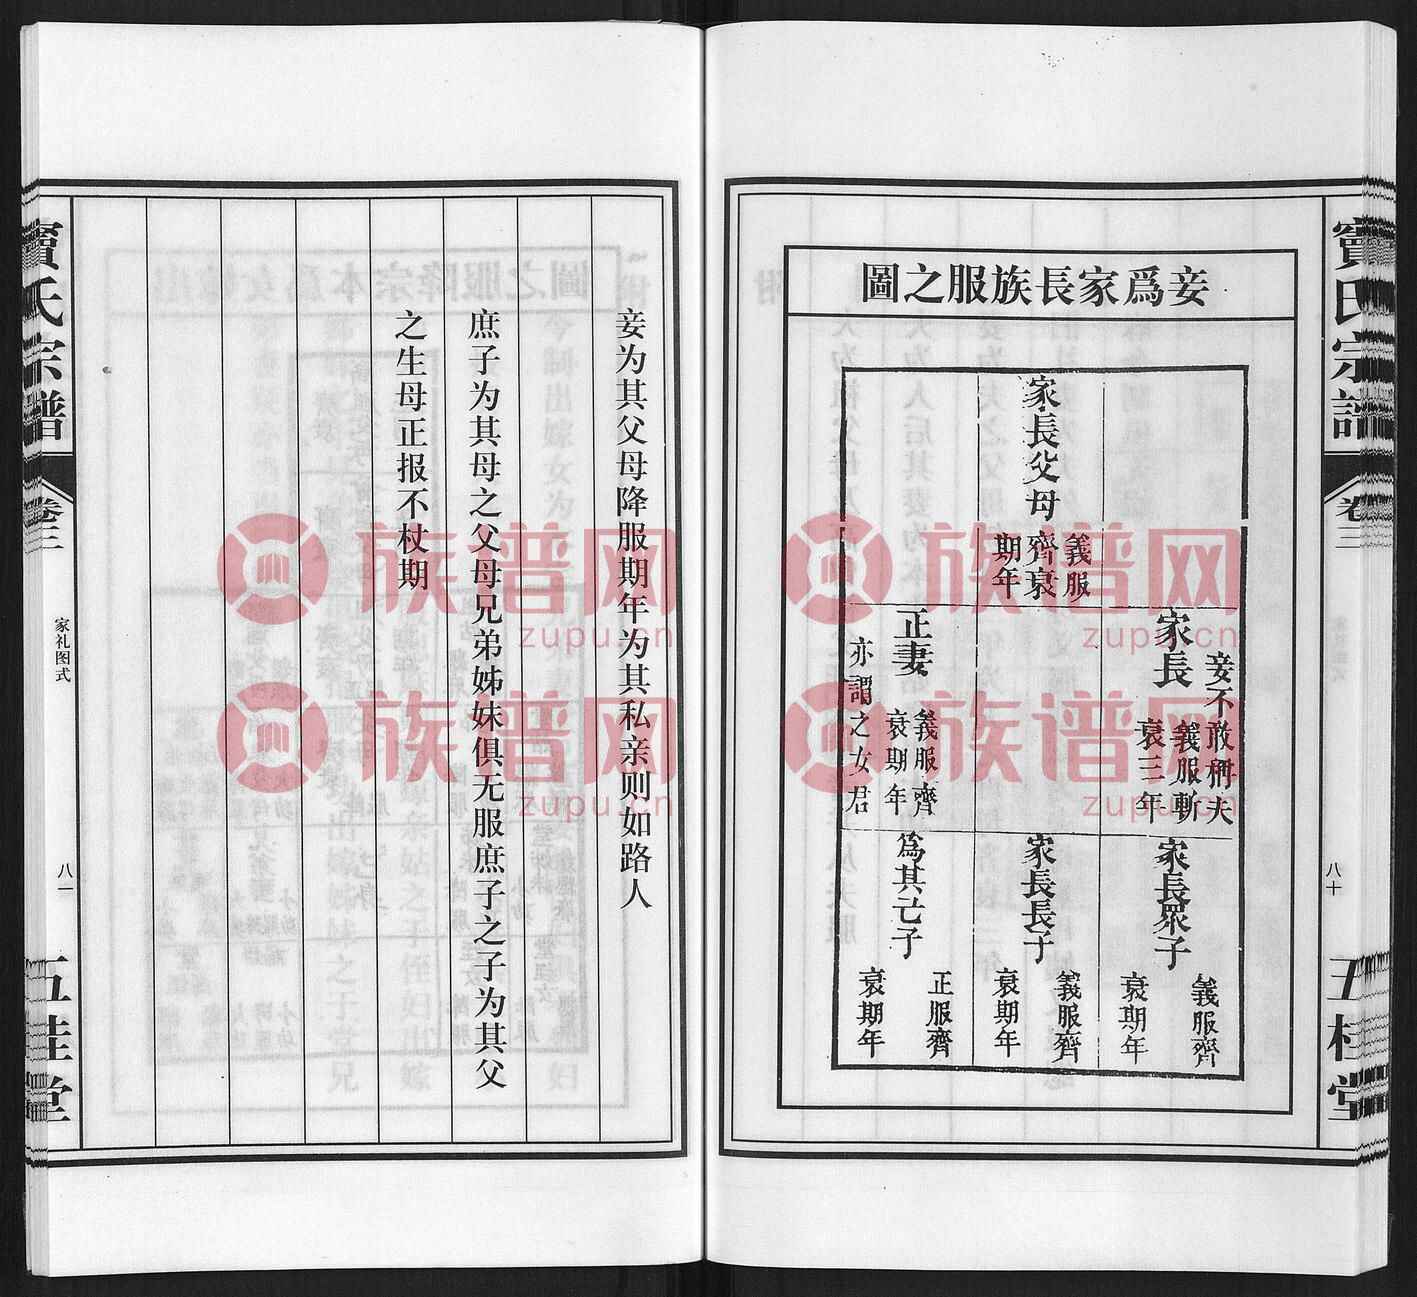 竇氏宗譜
卷三
八十
五桂堂
妾爲家長族服之圖
家長父母
義服
齊衰
期年
家長
妾不敢稱夫
義服斬
衰三年
正妻
義服齊
衰期年
亦謂之女君
家長眾子
義服齊
衰期年
家長長子
義服齊
衰期年
為其亡子
正服齊
衰期年
妾为其父母降服期年为其私亲则如路人
庶子为其母之父母兄弟姊妹俱无服庶子之子为其父
之生母正报不杖期
竇氏宗譜
卷三
家礼图式
八一
五桂堂
族谱网
zupu.cn
族谱网
zupu.cn
族谱网
zupu.cn
族谱网
zupu.cn